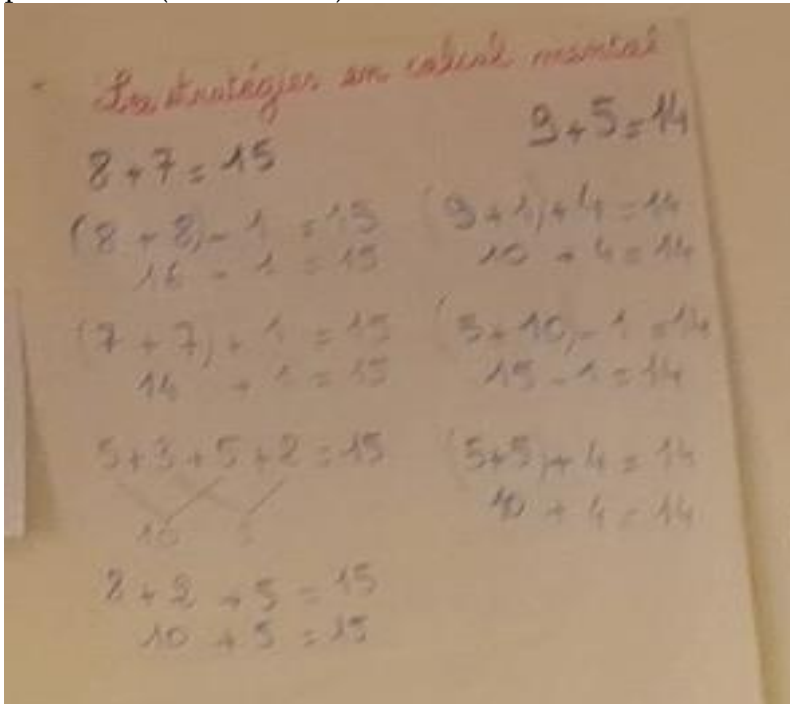 Les stratégies en calcul mental
8 + 7 = 15
(8 + 8) - 1 = 15
16 - 1 = 15
(7 + 7) + 1 = 15
14 + 1 = 15
5 + 3 + 5 + 2 = 15
10 5
8 + 2 + 5 = 15
10 + 5 = 15
9 + 5 = 14
(9 + 1) + 4 = 14
10 + 4 = 14
(5 + 10) - 1 = 14
15 - 1 = 14
(5 + 5) + 4 = 14
10 + 4 = 14